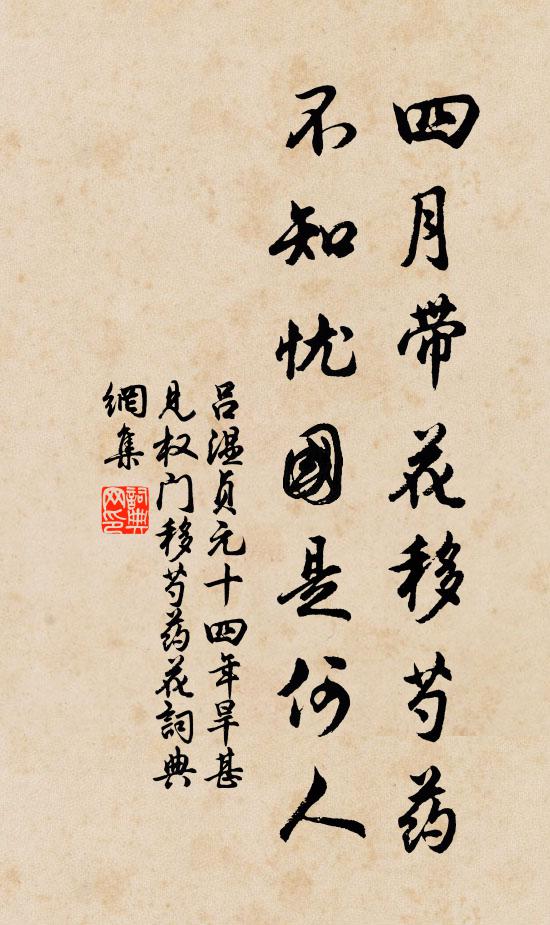 四月带花移芍药
不知忧國是何人
吕温贞元十四年旱甚
见权门移芍药花詞典
網集
詞典
网印